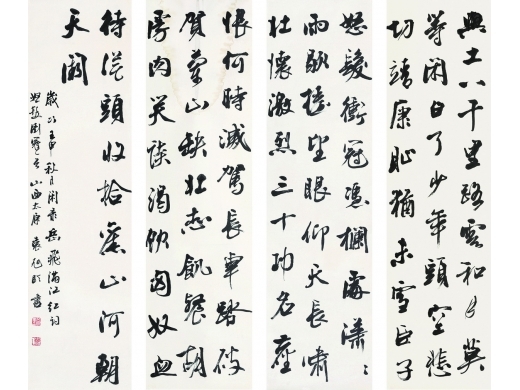 與土八千里路雲和月莫
等閑白了少年頭空悲
切靖康恥猶未雪臣子
怒髮衝冠憑欄處瀟々
雨歇擡望眼仰天長嘯
壯懷激烈三十功名塵
恨何時滅駕長車踏破
賀蘭山缺壯志飢餐胡
虜肉笑談渴飲匈奴血
待從頭收拾舊山河朝
天闕
歲次壬申秋月閑書岳飛滿江紅詞
山西太原袁旭臨書